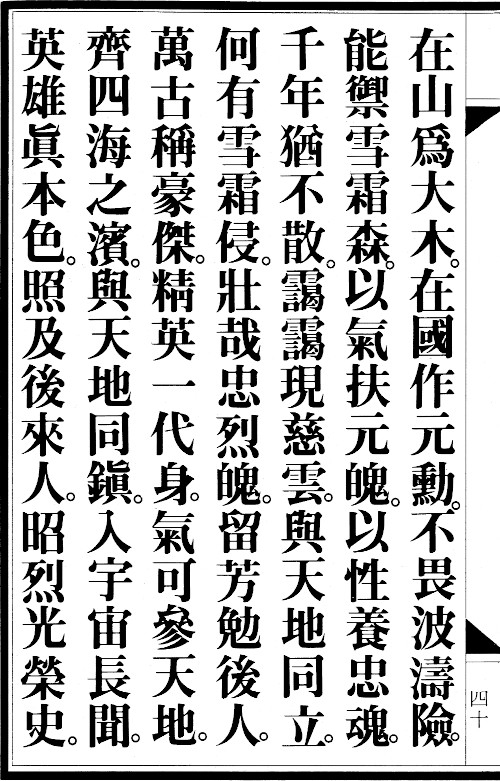 在山爲大木。在國作元勳。不畏波濤險。
能禦雪霜森。以氣扶元魄。以性養忠魂。
千年猶不散。靄靄現慈雲。與天地同立。
何有雪霜侵。壯哉忠烈魄。留芳勉後人。
萬古稱豪傑。精英一代身。氣可參天地。
齊四海之濱。與天地同鎭。入宇宙長聞。
英雄眞本色。照及後來人。昭烈光榮史。
四十